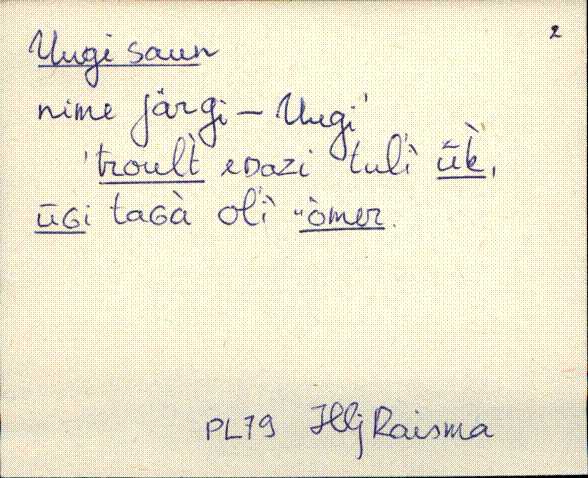 2
Uugi saun
nime järgi – Uugi
'troult̀ eᴅazi tulì ūk̀,
ūɢi taɢà olì òmer.
PL79 Raisma